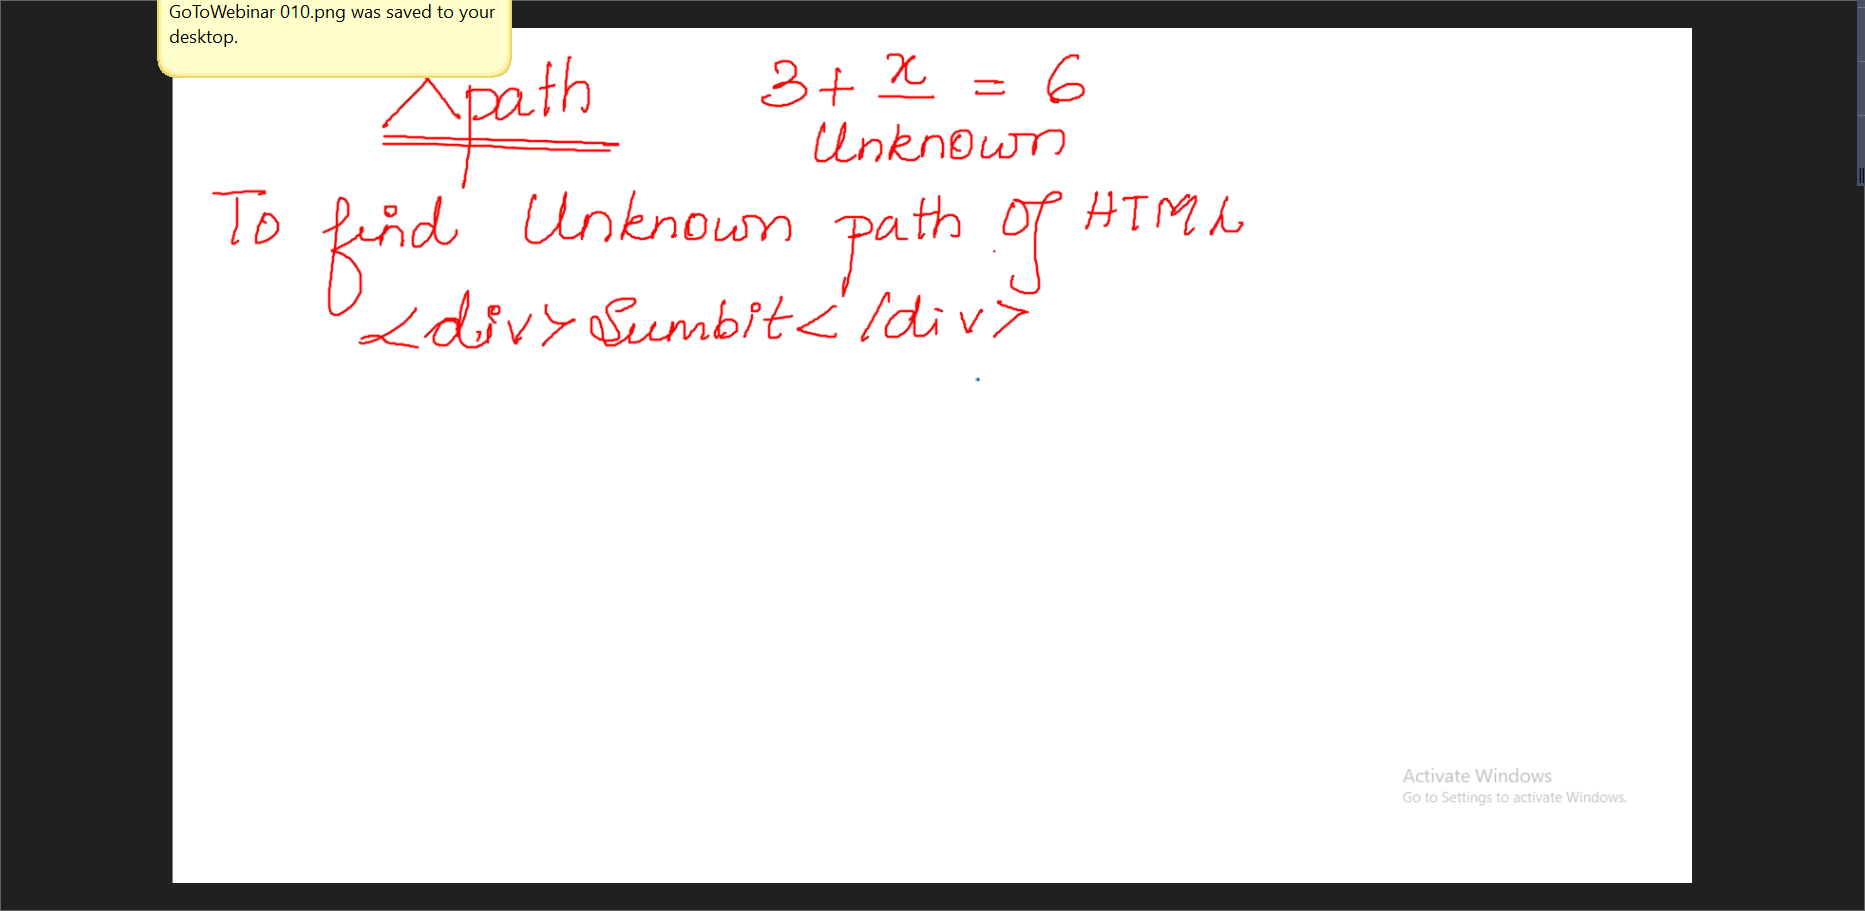 GoToWebinar 010.png was saved to your
desktop.
path 3 + x = 6
Unknown
To find Unknown path of HTML
<div>Sumbit</div>
Activate Windows
Go to Settings to activate Windows.